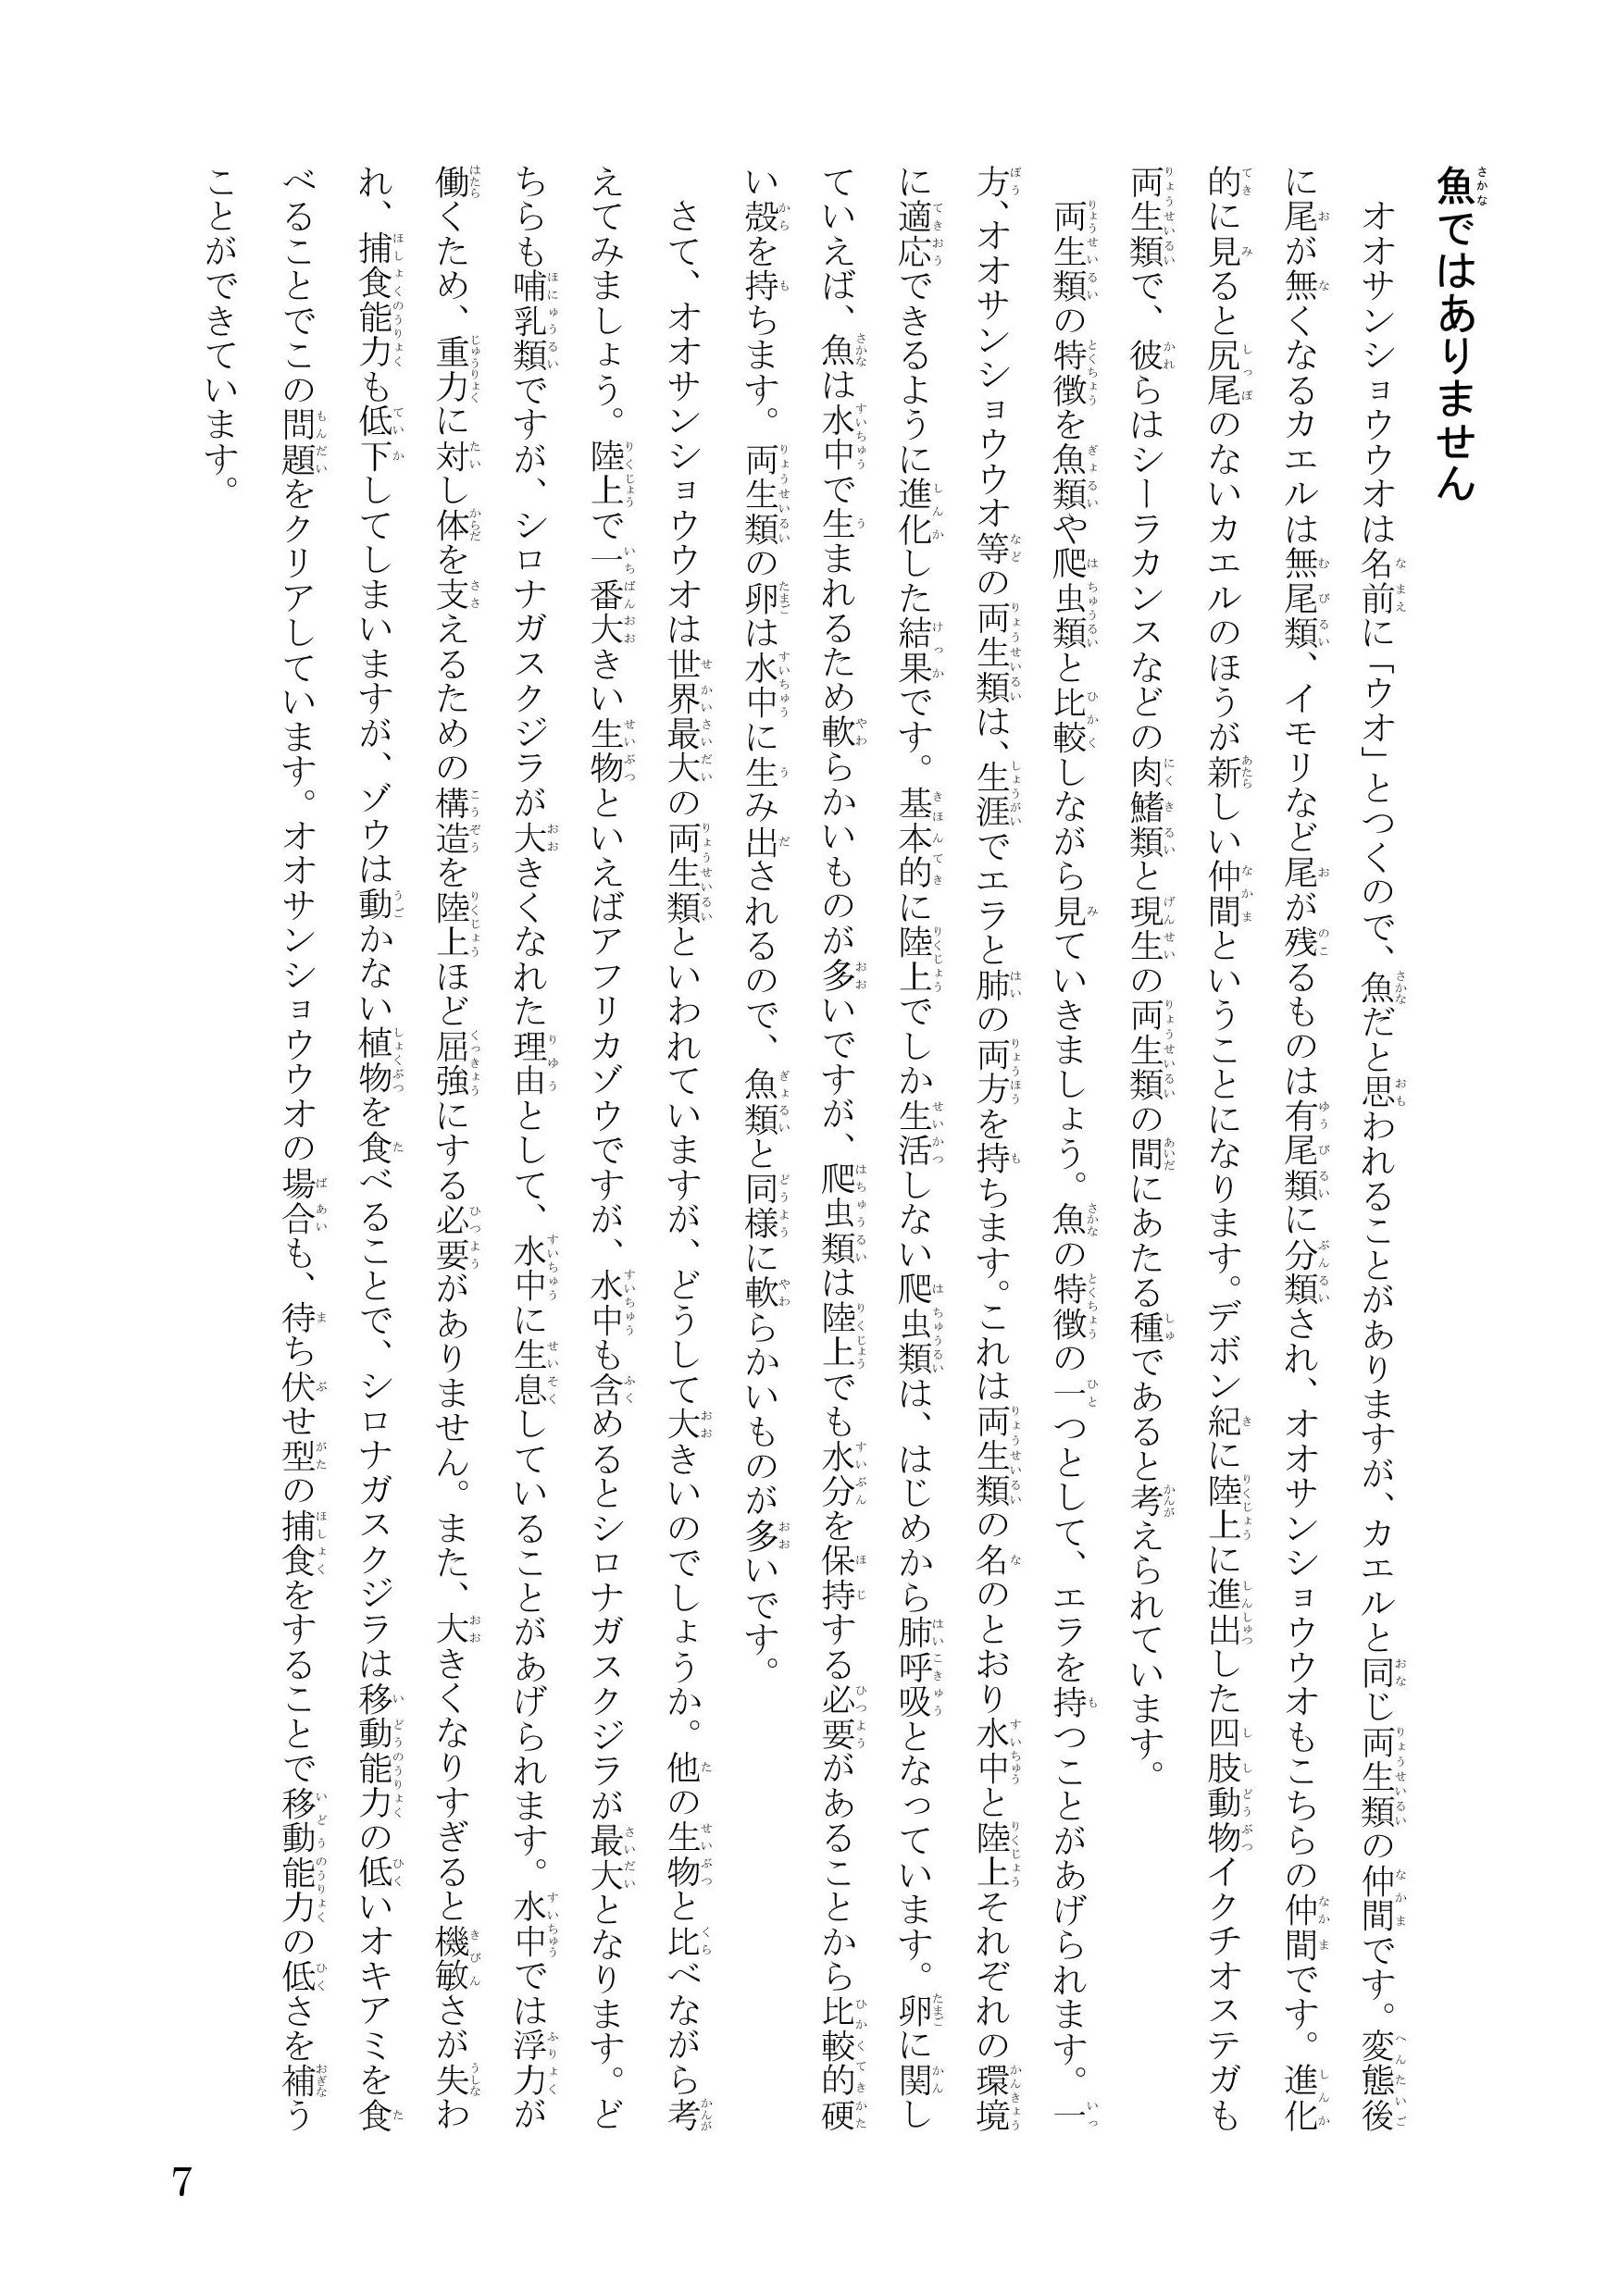 魚ではありません
オオサンショウウオは名前に「ウオ」とつくので、魚だと思われることがありますが、カエルと同じ両生類の仲間です。変態後
に尾が無くなるカエルは無尾類、イモリなど尾が残るものは有尾類に分類され、オオサンショウウオもこちらの仲間です。進化
的に見ると尻尾のないカエルのほうが新しい仲間ということになります。デボン紀に陸上に進出した四肢動物イクチオステガも
両生類で、彼らはシーラカンスなどの肉鰭類と現生の両生類の間にあたる種であると考えられています。
両生類の特徴を魚類や爬虫類と比較しながら見ていきましょう。魚の特徴の一つとして、エラを持つことがあげられます。一
方、オオサンショウウオ等の両生類は、生涯でエラと肺の両方を持ちます。これは両生類の名のとおり水中と陸上それぞれの環境
に適応できるように進化した結果です。基本的に陸上でしか生活しない爬虫類は、はじめから肺呼吸となっています。卵に関し
ていえば、魚は水中で生まれるため軟らかいものが多いですが、爬虫類は陸上でも水分を保持する必要があることから比較的硬
い殻を持ちます。両生類の卵は水中に生み出されるので、魚類と同様に軟らかいものが多いです。
さて、オオサンショウウオは世界最大の両生類といわれていますが、どうして大きいのでしょうか。他の生物と比べながら考
えてみましょう。陸上で一番大きい生物といえばアフリカゾウですが、水中も含めるとシロナガスクジラが最大となります。ど
ちらも哺乳類ですが、シロナガスクジラが大きくなれた理由として、水中に生息していることがあげられます。水中では浮力が
働くため、重力に対し体を支えるための構造を陸上ほど屈強にする必要がありません。また、大きくなりすぎると機敏さが失わ
れ、捕食能力も低下してしまいますが、ゾウは動かない植物を食べることで、シロナガスクジラは移動能力の低いオキアミを食
べることでこの問題をクリアしています。オオサンショウウオの場合も、待ち伏せ型の捕食をすることで移動能力の低さを補う
ことができています。
7